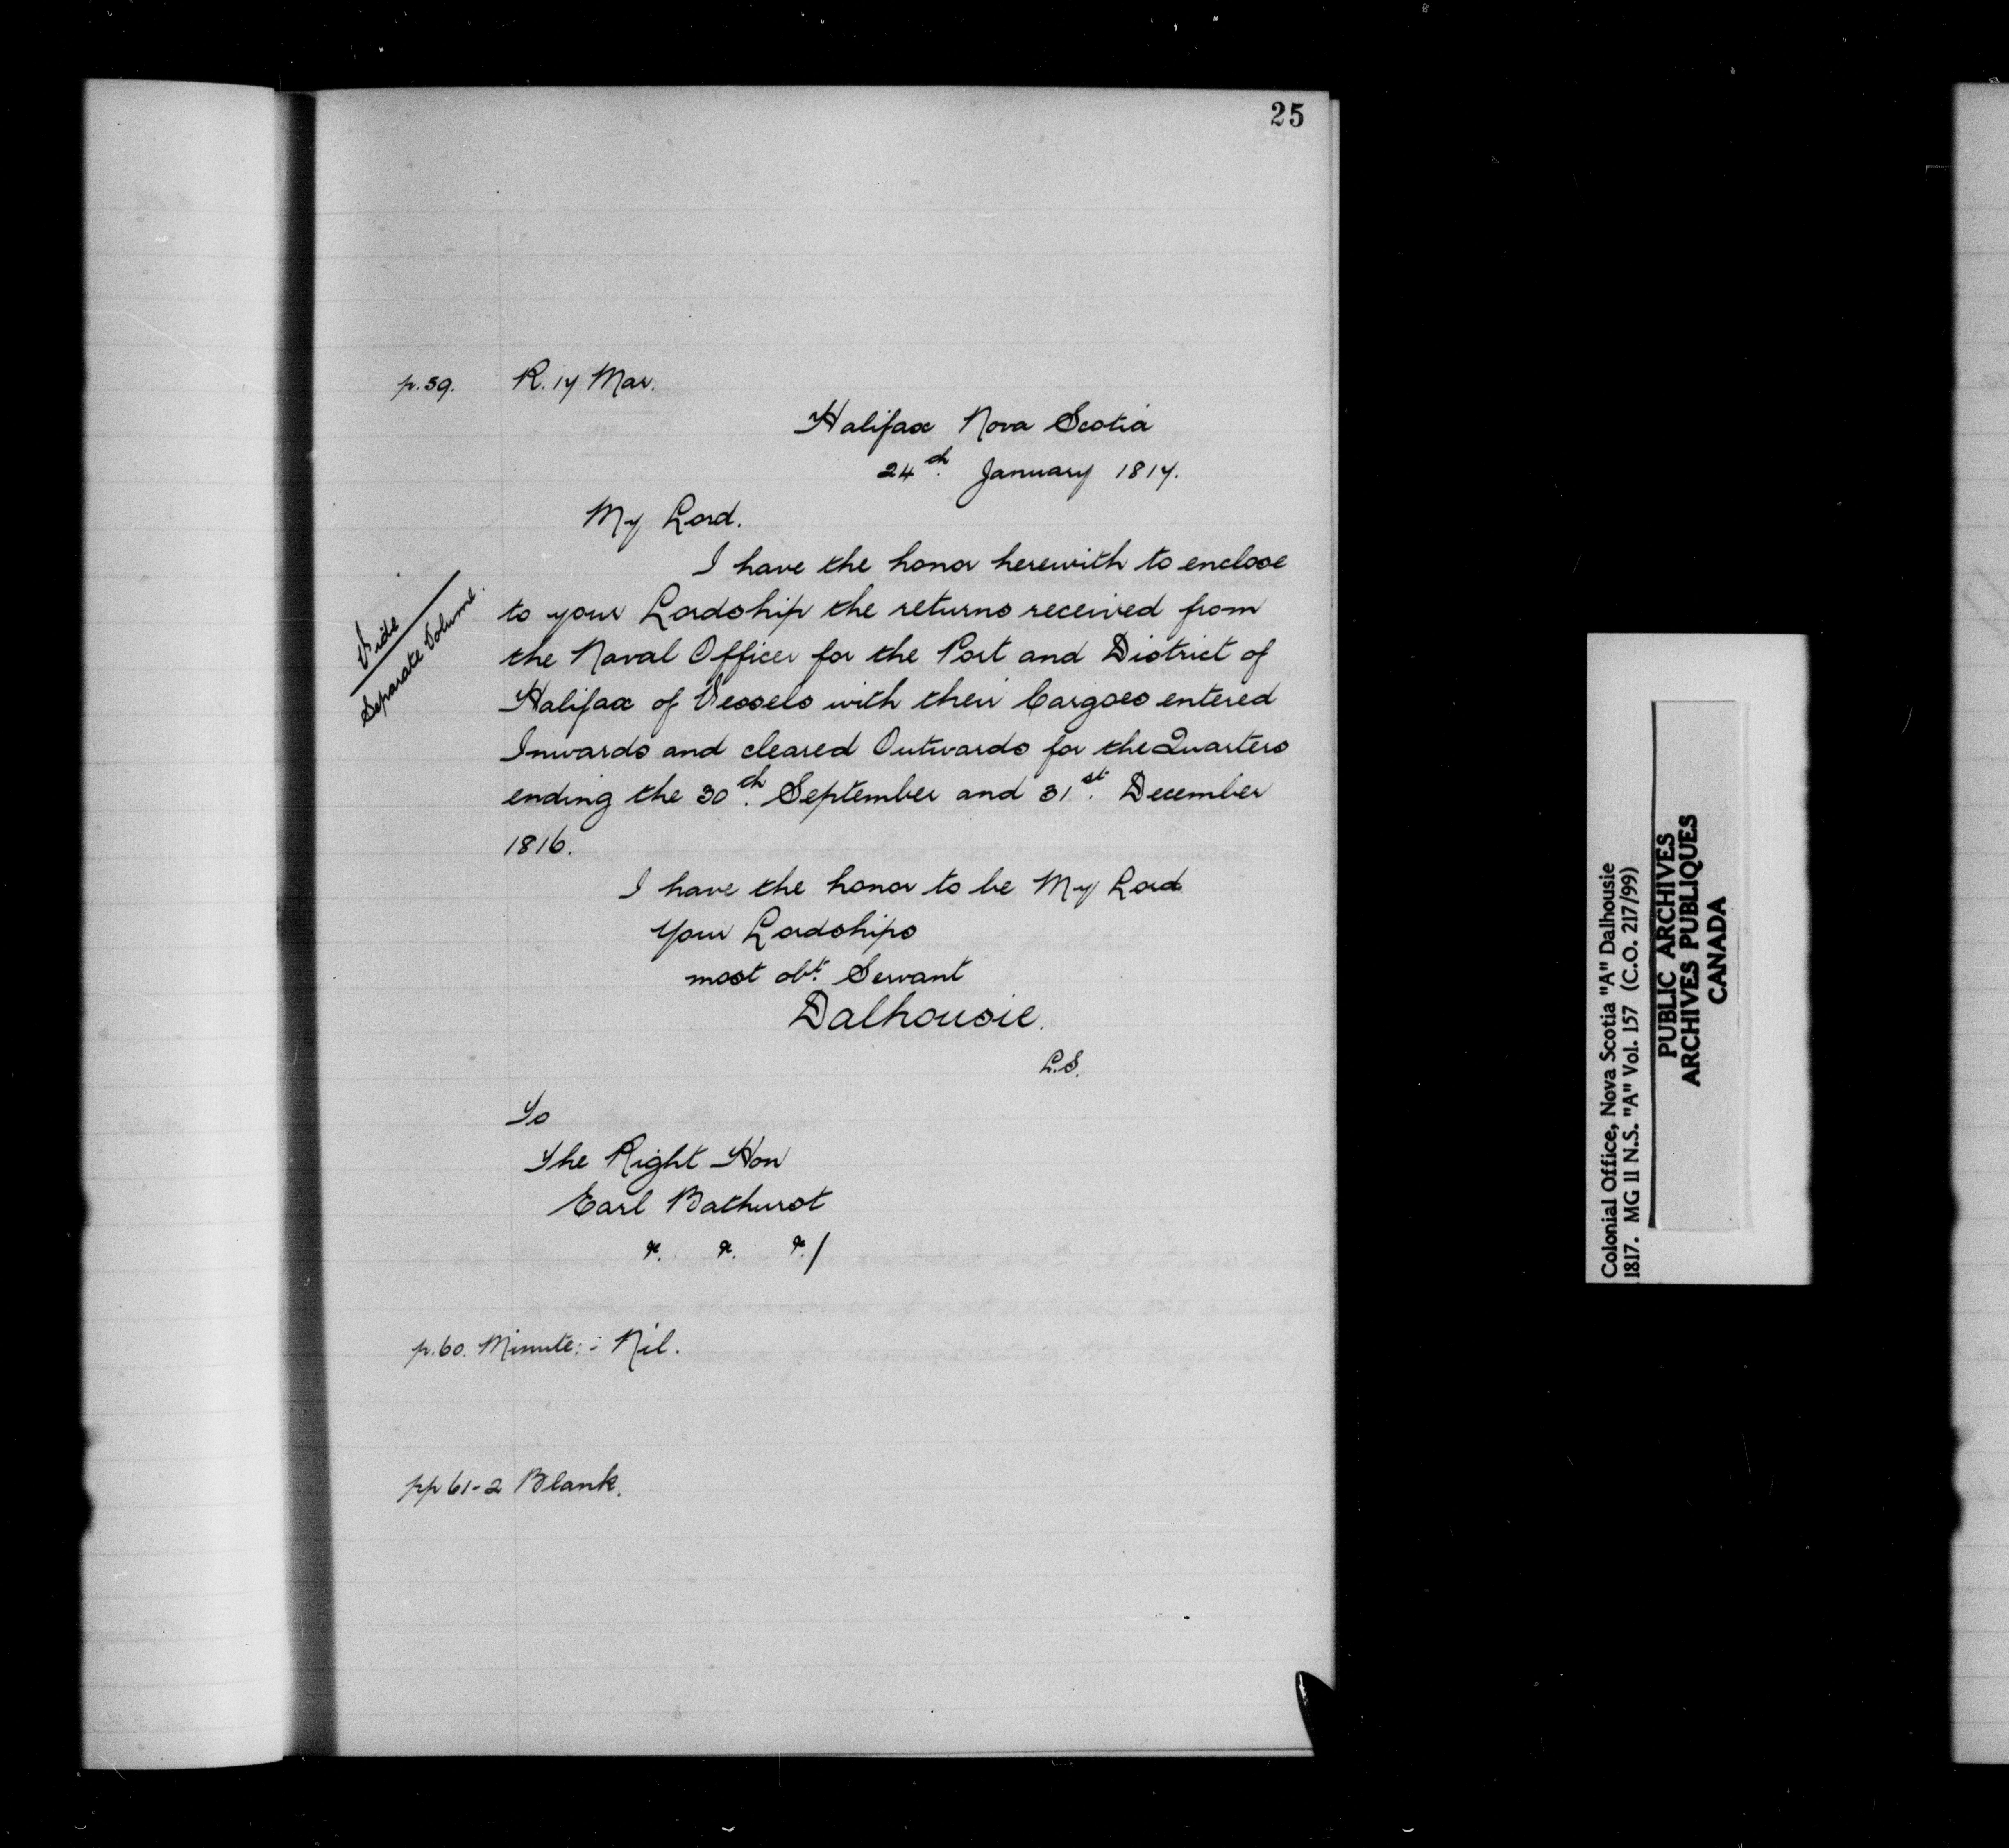 25
p.59. R. 17 Mar.
Halifax Nova Scotia
24th. January 1817.
My Lord.
I have the honor herewith to enclose
to your Lordship the returns received from
the Naval Officer for the Port and District of
Halifax of Vessels with their Cargoes entered
Inwards and cleared Outwards for the Quarters
ending the 30th. September and 31st. December
1816.
Vide
Separate Volume.
I have the honor to be My Lord
Your Lordships
most obt. Servant
Dalhousie.
L.S.
To
The Right Hon
Earl Bathurst
&. &. &./
p.60. Minute:- Nil.
pp 61-2 Blank.
Colonial Office, Nova Scotia "A" Dalhousie
1817. MG 11 N.S. "A" Vol. 157 (C.O. 217/99)
PUBLIC ARCHIVES
ARCHIVES PUBLIQUES
CANADA